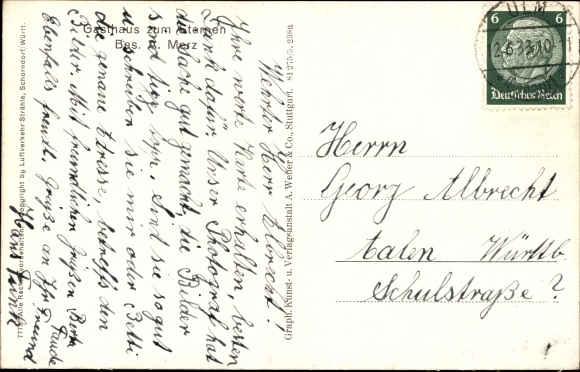 Gasthaus zum Sternen
Bes. A. Merz
Werter Herr Albrecht!
Ihre werte Karte erhalten, besten
Dank dafür. Unser Photograf hat
die Sache gut gemacht, die Bilder
sind hier. Sind sie so gut
u. schreiben sie mir oder Betti
die genaue Adresse, betreffs den
Bilder. Mit freundlichen Grüßen
Ebenfalls freundl. Grüße an Ihr Freund
Hans
Herrn
Georg Albrecht
Aalen Württb
Schulstraße?
ULM
2.6.33.10-11
6 6
Deutsches Reich
Graph. Kunst- u. Verlagsanstalt A. Weber & Co., Stuttgart. 81 275/5. 238a
Alle Rechte vorbehalten. Copyright by Luftverkehr Strähle, Schorndorf/Württ.